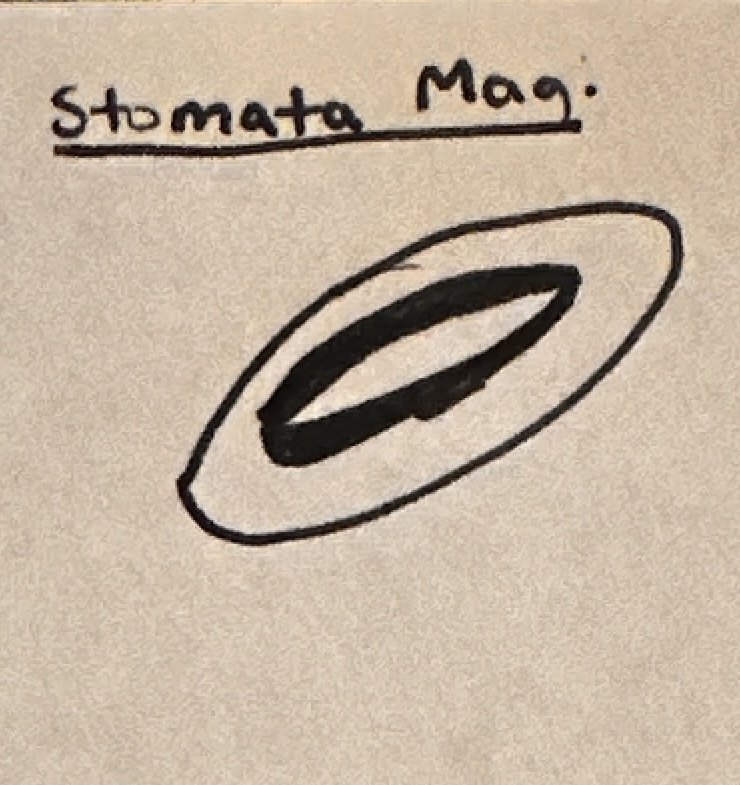 Stomata Mag.